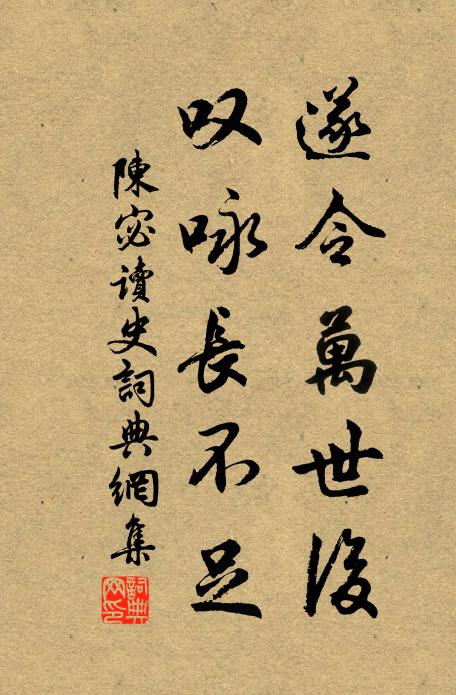 遂令萬世後
叹咏長不足
陳宓讀史詞典網集
詞典网印